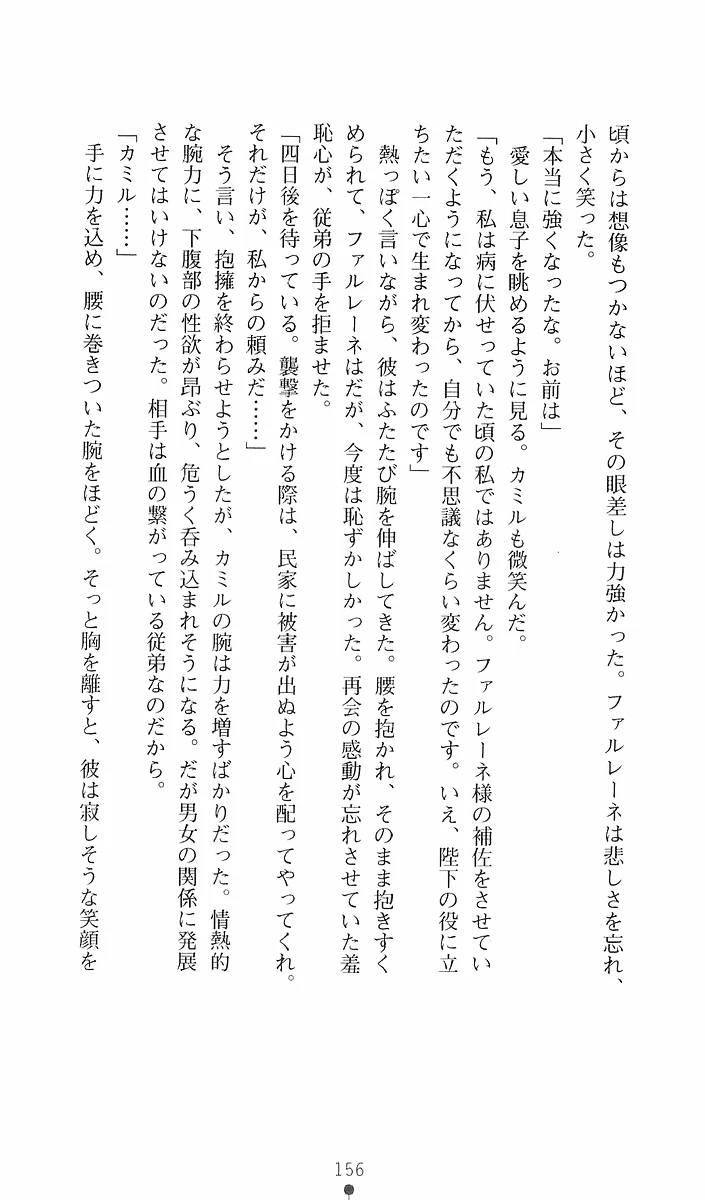 頃からは想像もつかないほど、その眼差しは力強かった。ファルレーネは悲しさを忘れ、
小さく笑った。
「本当に強くなったな。お前は」
愛しい息子を眺めるように見る。カミルも微笑んだ。
「もう、私は病に伏せっていた頃の私ではありません。ファルレーネ様の補佐をさせてい
ただくようになってから、自分でも不思議なくらい変わったのです。いえ、陛下の役に立
ちたい一心で生まれ変わったのです」
熱っぽく言いながら、彼はふたたび腕を伸ばしてきた。腰を抱かれ、そのまま抱きすく
められて、ファルレーネはだが、今度は恥ずかしかった。再会の感動が忘れさせていた羞
恥心が、従弟の手を拒ませた。
「四日後を待っている。襲撃をかける際は、民家に被害が出ぬよう心を配ってやってくれ。
それだけが、私からの頼みだ……」
そう言い、抱擁を終わらせようとしたが、カミルの腕は力を増すばかりだった。情熱的
な腕力に、下腹部の性欲が昂ぶり、危うく呑み込まれそうになる。だが男女の関係に発展
させてはいけないのだった。相手は血の繋がっている従弟なのだから。
「カミル……」
手に力を込め、腰に巻きついた腕をほどく。そっと胸を離すと、彼は寂しそうな笑顔を
156